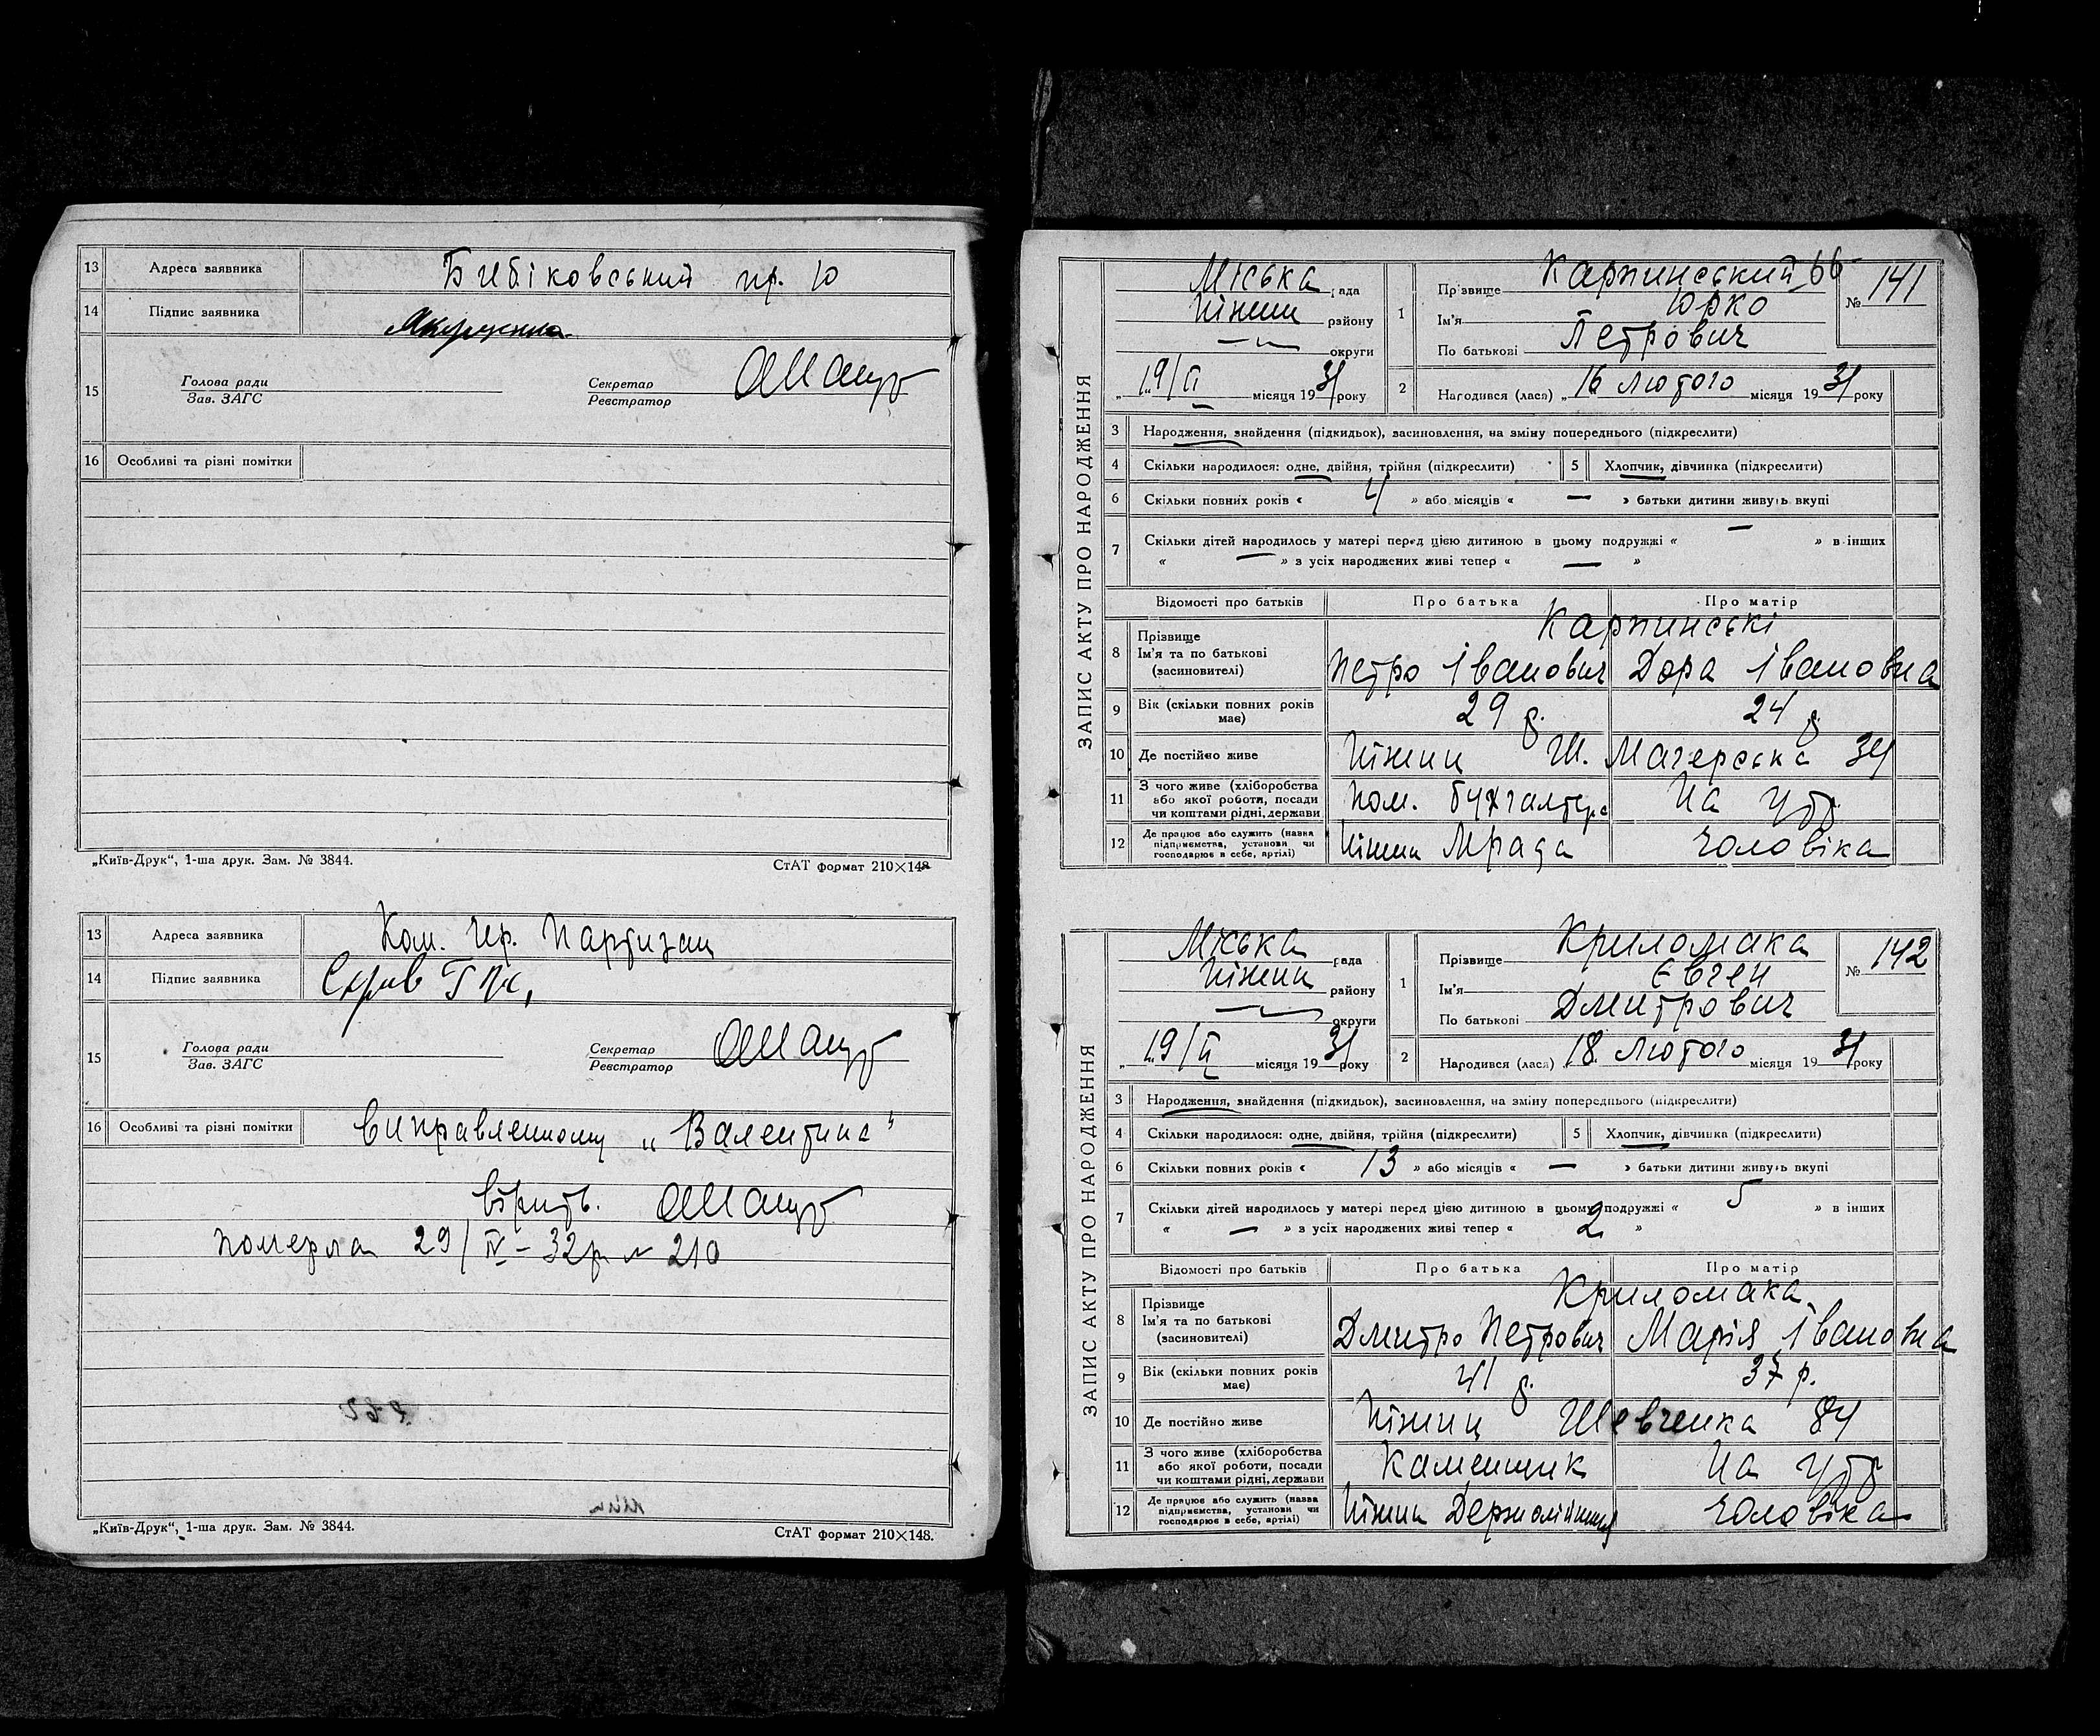 13 Адреса заявника Бибіковський пр. 10
14 Підпис заявника
15 Голова ради
Зав. ЗАГС
Секретар
Реєстратор
16 Особливі та різні помітки
„Київ-Друк“, 1-ша друк. Зам. № 3844. СтАТ формат 210×148
13 Адреса заявника Ком. Чр. Партизан
14 Підпис заявника
15 Голова ради
Зав. ЗАГС
Секретар
Реєстратор
16 Особливі та різні помітки Виправленному „Валентина“
вірить.
померла 29/IV–32р № 210
„Київ-Друк“, 1-ша друк. Зам. № 3844. СтАТ формат 210×148.
ЗАПИС АКТУ ПРО НАРОДЖЕННЯ
Міська рада
Ніжин району
— округи
„19/II місяця 1931 року
1 Прізвище Карпинський 66
Ім'я Юрко
По батькові Петрович
№ 141
2 Народився (лася) „16 Лютого місяця 1931 року
3 Народження, знайдення (підкидьок), засиновлення, на зміну попереднього (підкреслити)
4 Скільки народилося: одне, двійня, трійня (підкреслити) 5 Хлопчик, дівчинка (підкреслити)
6 Скільки повних років « 4 » або місяців « — » батьки дитини живуть вкупі
7 Скільки дітей народилось у матері перед цією дитиною в цьому подружжі « — » в інших
« — » з усіх народжених живі тепер « — »
Відомості про батьків Про батька Про матір
8 Прізвище
Ім'я та по батькові
(засиновителі)
Карпинські
Петро Іванович Дора Івановна
9 Вік (скільки повних років має) 29 р. 24 р.
10 Де постійно живе Ніжин Ш. Магерська 34
11 З чого живе (хліборобства або якої роботи, посади чи коштами рідні, держави Пом. бухгалтера На утр.
12 Де працює або служить (назва підприємства, установи чи господарює в себе, артілі) Ніжин Мрада чоловіка
ЗАПИС АКТУ ПРО НАРОДЖЕННЯ
Міська рада
Ніжин району
— округи
„19/II місяця 1931 року
1 Прізвище Криломака
Ім'я Євген
По батькові Дмитрович
№ 142
2 Народився (лася) 18 Лютого місяця 1931 року
3 Народження, знайдення (підкидьок), засиновлення, на зміну попереднього (підкреслити)
4 Скільки народилося: одне, двійня, трійня (підкреслити) 5 Хлопчик, дівчинка (підкреслити)
6 Скільки повних років « 13 » або місяців « — » батьки дитини живуть вкупі
7 Скільки дітей народилось у матері перед цією дитиною в цьому подружжі « 5 » в інших
« — » з усіх народжених живі тепер « 2 »
Відомості про батьків Про батька Про матір
8 Прізвище
Ім'я та по батькові
(засиновителі)
Криломака
Дмитро Петрович Марія Івановна
9 Вік (скільки повних років має) 41 р. 37 р.
10 Де постійно живе Ніжин Шевченка 84
11 З чого живе (хліборобства або якої роботи, посади чи коштами рідні, держави Каменщик На утр
12 Де працює або служить (назва підприємства, установи чи господарює в себе, артілі) Ніжин чоловіка